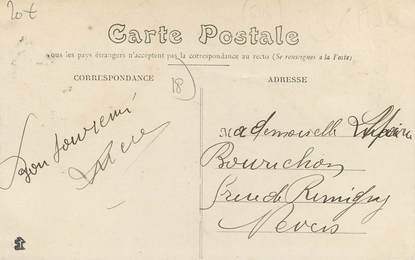 20t
Carte Postale
Tous les pays étrangers n'acceptent pas la correspondance au recto (Se renseigner à la Poste)
CORRESPONDANCE
ADRESSE
18
Bon souvenir
Mademoiselle
Bourichon
rue de Rémigny
Nevers